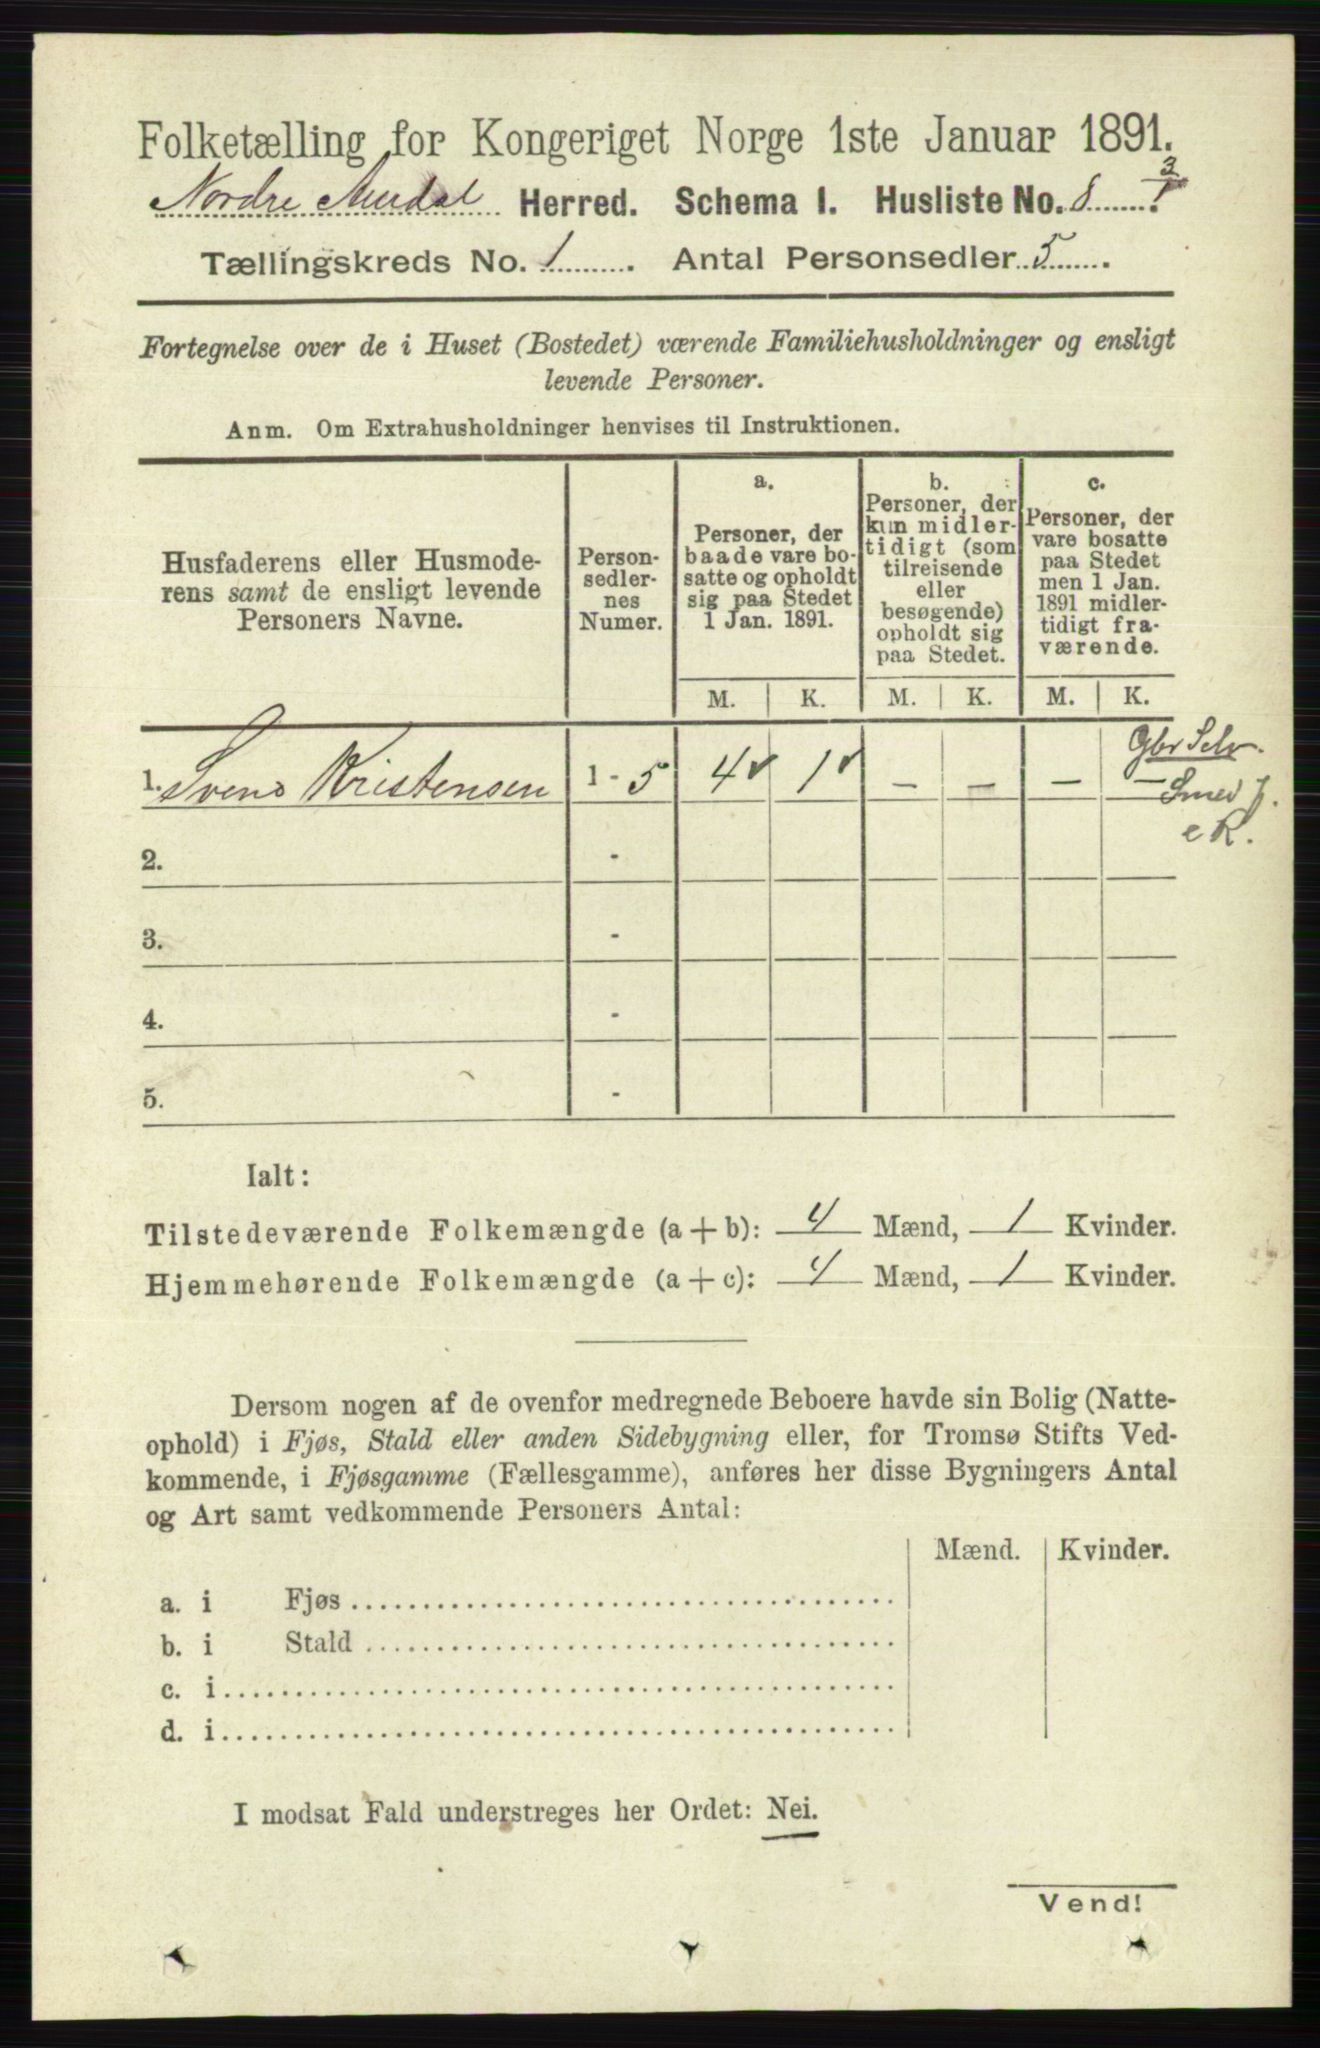 Folketælling for Kongeriget Norge 1ste Januar 1891.
Nordre Aurdal Herred. Schema I. Husliste No. 8
Tællingskreds No. 1. Antal Personsedler 5.
Fortegnelse over de i Huset (Bostedet) værende Familiehusholdninger og ensligt
levende Personer.
Anm. Om Extrahusholdninger henvises til Instruktionen.
Husfaderens eller Husmode-
rens samt de ensligt levende
Personers Navne.
Person-
sedler-
nes
Numer.
a.
Personer, der
baade vare bo-
satte og opholdt
sig paa Stedet
1 Jan. 1891.
b.
Personer, der
kun midler-
tidigt (som
tilreisende
eller
besøgende)
opholdt sig
paa Stedet.
c.
Personer, der
vare bosatte
paa Stedet
men 1 Jan.
1891 midler-
tidigt fra-
værende.
M. K. M. K. M. K.
1. Svend Kristensen 1 - 5 4 1 - - - -
Gbr Selv.
Smed J.
e R.
2. -
3. -
4. -
5. -
Ialt:
Tilstedeværende Folkemængde (a + b): 4 Mænd, 1 Kvinder.
Hjemmehørende Folkemængde (a + c): 4 Mænd, 1 Kvinder.
Dersom nogen af de ovenfor medregnede Beboere havde sin Bolig (Natte-
ophold) i Fjøs, Stald eller anden Sidebygning eller, for Tromsø Stifts Ved-
kommende, i Fjøsgamme (Fællesgamme), anføres her disse Bygningers Antal
og Art samt vedkommende Personers Antal:
Mænd. Kvinder.
a. i Fjøs
b. i Stald
c. i
d. i
I modsat Fald understreges her Ordet: Nei.
Vend!